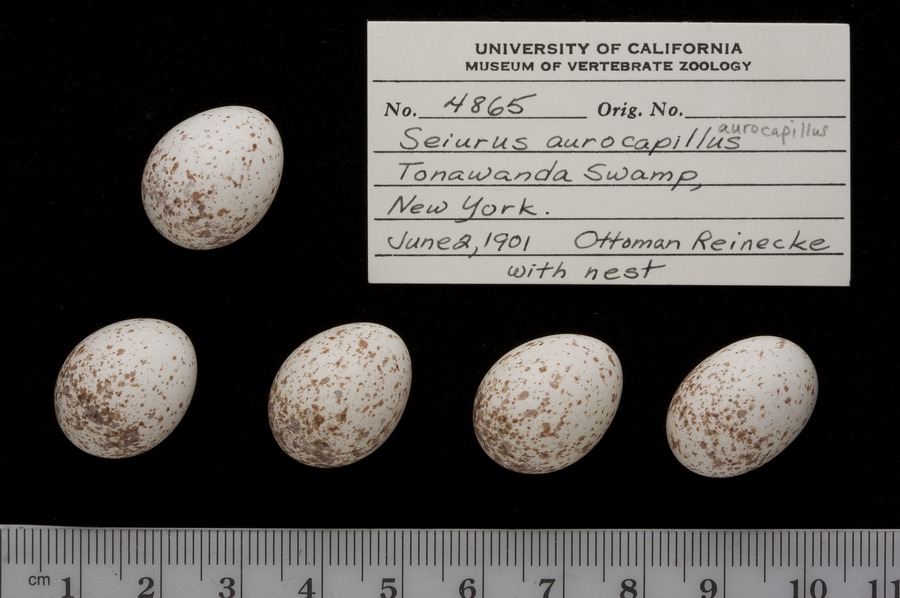 UNIVERSITY OF CALIFORNIA
MUSEUM OF VERTEBRATE ZOOLOGY
No. 4865 Orig. No.
aurocapillus
Seiurus aurocapillus
Tonawanda Swamp,
New York.
June 2, 1901 Ottoman Reinecke
with nest
cm 1 2 3 4 5 6 7 8 9 10 11